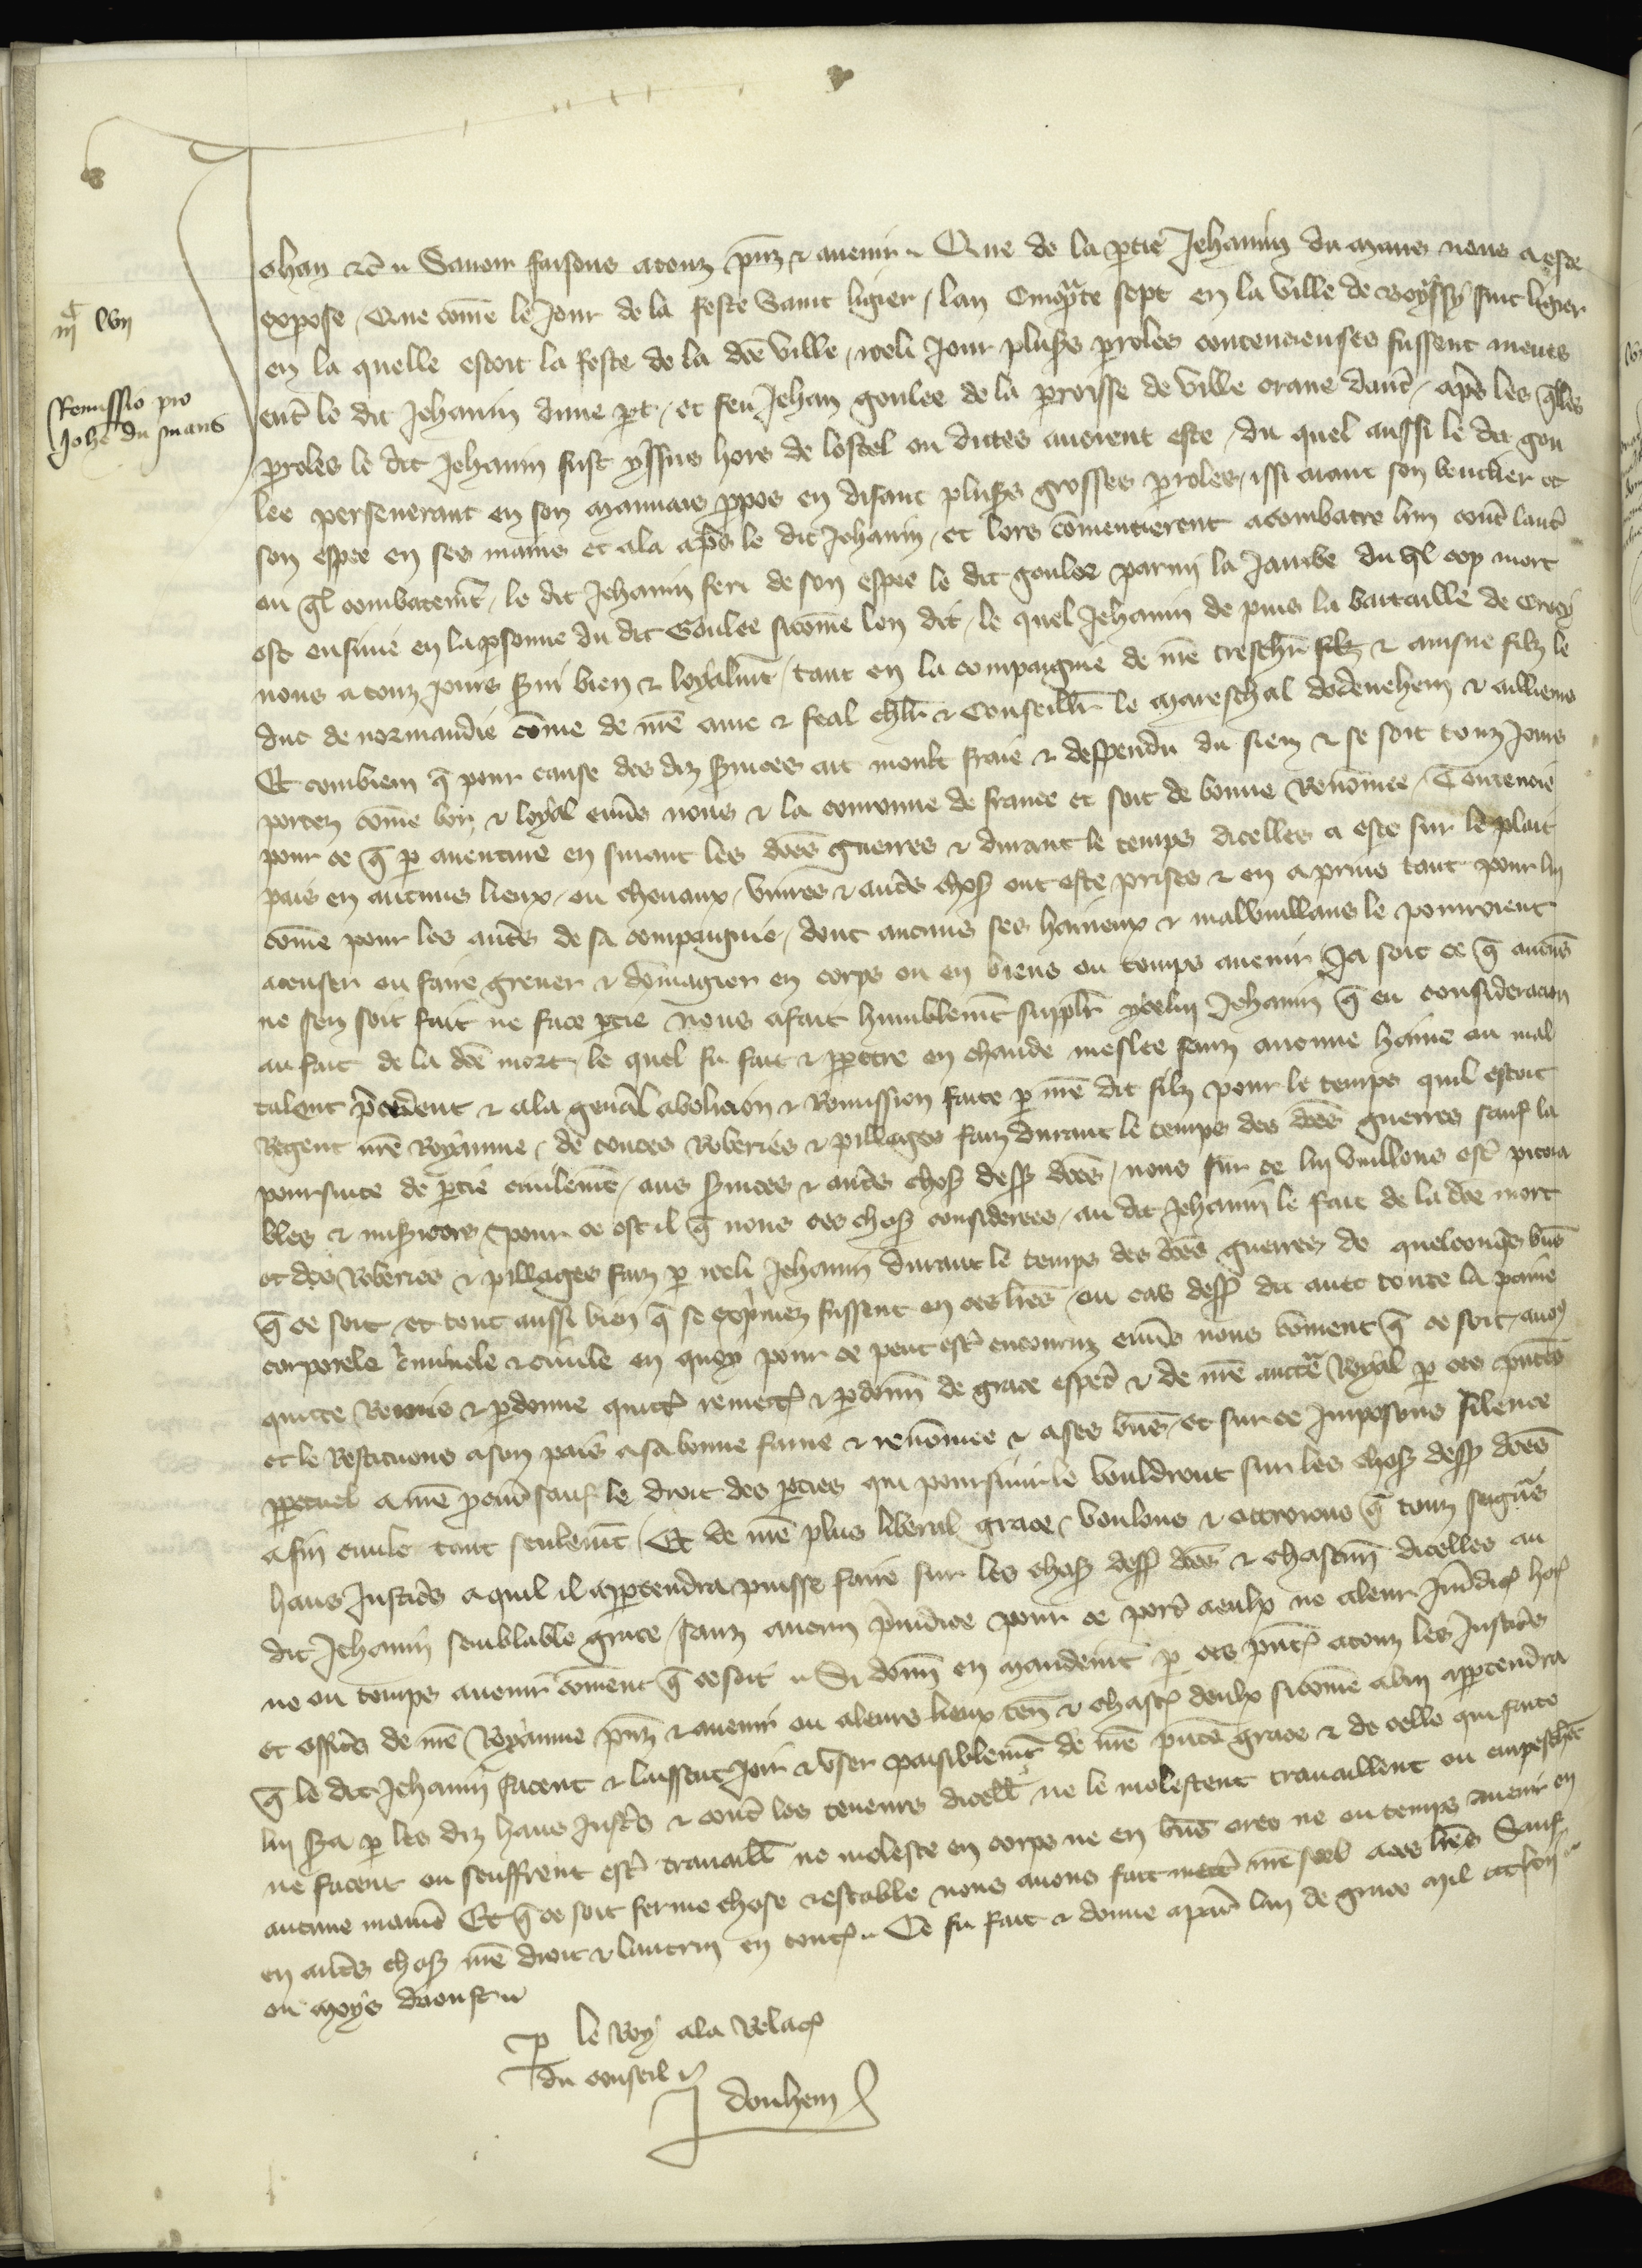 iijc lvij
Remissio pro
Johe du mans
Jehan &c Savoir faisons a touz presenz & avenir Que de la ptie Jehannin du mans nous a este
expose Que come le Jour de la feste Saint ligier lan Cinqte sept en la ville de Boyssy saint ligier
en la quelle estoit la feste de la dce ville iceli Jour plusrs proles contencieuses fussent meues
ent le dit Jehannin dune pt et feu Jehan goulee de la proisse de ville crane daut apres les qlles
proles le dit Jehannin fust yssus hors de lostel ou dictes avoient este du quel aussi le dit gou
lee perseverant en son mauvais ppos en disant plusrs grosses proles issi aiant son bouclier et
son espee en ses mains et ala apres le dit Jehannin et lors comencierent a combatre lun cont laut
ou ql combatemt le dit Jehannin feri de son espee le dit goulee parmi la Jambe du ql cop mort
est ensuivie en la psonne du dit Goulee sicome len dit le quel Jehannin de puis la bataille de Crecy
nous a touz jours svi bien & loyalmt tant en la compaignie de nre treschr filz & ainsne filz le
duc de normandie come de nre ame & feal chlr & Conseillr le mareschal dodenehem & ailliens
Et combien q pour cause des diz svices ait moult fraie & despendu du sien & se soit touz jours
portez come bon & loyal envs nous & la couronne de france et soit de bonne Renommee Toutevoie
pour ce q p aventure en suiant les dces guerres & durant le temps dicelles a este sur le plait
pais en aucuns lieux ou chevaux vivres & autres choses ont este prises & en a prins tant pour li
come pour les autres de sa compaignie dont aucuns ses haineux & malveillans le pourroient
acuser ou faire grever & domagier en corps ou en biens ou temps avenir Ja soit ce q aucuns
ne sen soit fait ne face ptie Nous a fait humblemt supplr ycelui Jehannin q en consideracion
au fait de la dce mort le quel fu fait & ppetre en chaude meslee sanz aucune haine ou mal
talent precedent & a la genal abolicion & Remission faite p nre dit filz pour le temps quil estoit
Regent nre Royaume de toutes Roberies & pillages faiz durant le temps des dces guerres sauf la
poursuite de ptie civilemt aus svices & autres choses dess dces nous sur ce li vuillons estr pitea
bles & misicors pour ce est il q nous ces choses considerees au dit Jehannin le fait de la dce mort
et des Roberies & pillages faiz p iceli Jehannin durant le temps des dces guerres de quelconqs bns
q ce soit et tout aussi bien q se exprimez fussent en ces lres ou cas dess dit avec toute la peine
corporele criminele & civile en quoy pour ce peut estr encouruz envs nous coment q ce soit avos
quitte Remis & pdonne quitts remettos & pdonns de grace especl & de nre auctte Royal p ces pntes
et le Restituons a son pais a sa bonne fame & renommee & a ses bns et sur ce Imposons silence
ppetuel a nre procur sauf le droit des pties qui poursuir le vouldront sur les choses dess dces
a fin civile tant seulemt Et de nre plus liberal grace voulons & ottroions q touz seigurs
haus Justicrs a quil il appertendra puisse faire sur les choses dess dces & chascune dicelles au
dit Jehannin semblable grace sanz aucun prejudice pour ce port a eulx ne a leur Juridicos hors
ne ou temps avenir coment q ce soit Si donns en mandemt p ces pntes a touz les Justicrs
et officrs de nre Royaume presenz & avenir ou a leurs lieux ten & chascun deulx sicome a lui appertendra
q le dit Jehannin facent & laissent Joir & user paisiblemt de nre pnte grace & de celle qui faite
lui sera p les diz haus Justicrs & cont les teneurs dicelles ne le molestent travaillent ou empeschent
ne facent ou seuffrent estr travaill ne moleste en corps ne en bns ores ne ou temps avenir en
aucune manie Et q ce soit ferme chose & estable nous avons fait mettr nre seel a ces lres Sauf
en autres choses nre droit & lautrui en toutes Ce fu fait & donne a Paris lan de grace mil ccc lxij
ou moys daoust
p le Roy a la Relacos
du conseil
J douhem